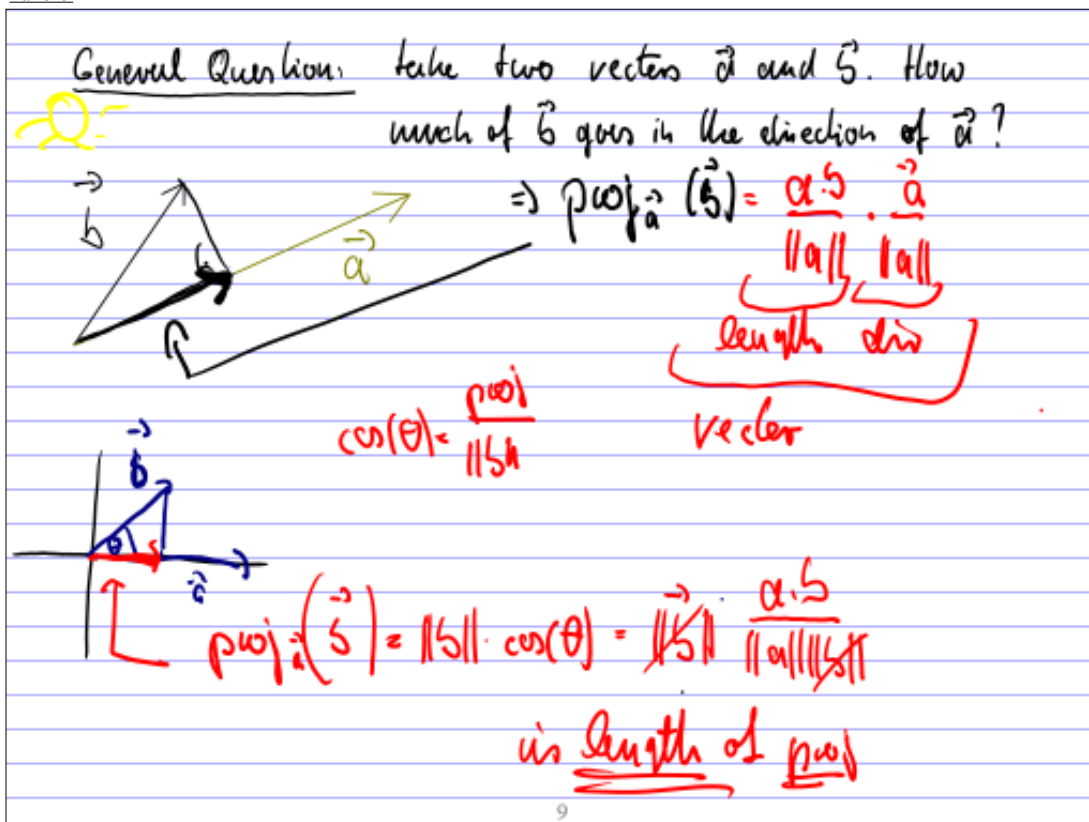 General Question: take two vectors a⃗ and b⃗. How
much of b⃗ goes in the direction of a⃗?
b⃗
a⃗
=> proj_a⃗ (b⃗) = a·b/||a|| · a⃗/||a||
length dir
vector
cos(θ) = proj/||b||
b⃗
θ
a⃗
proj_a⃗ (b⃗) = ||b|| · cos(θ) = ||b⃗|| · a·b/||a|| ||b||
is length of proj
9